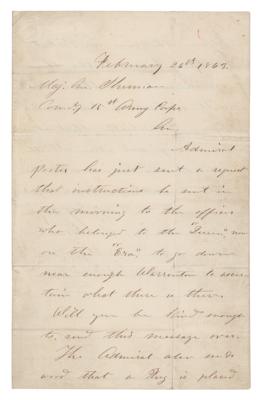 February 26th 1863.
Maj. Gen. Sherman
Comdg 15th Army Corps
Sir,
Admiral
Porter has just sent a request
that instructions be sent in
the morning to the officer
who belonged to the "Queen" now
on the "Era" to go down
near enough Warrenton to ascer-
tain what there is there.
Will you be kind enough
to send this message over.
The Admiral also sends
word that a Flag is placed